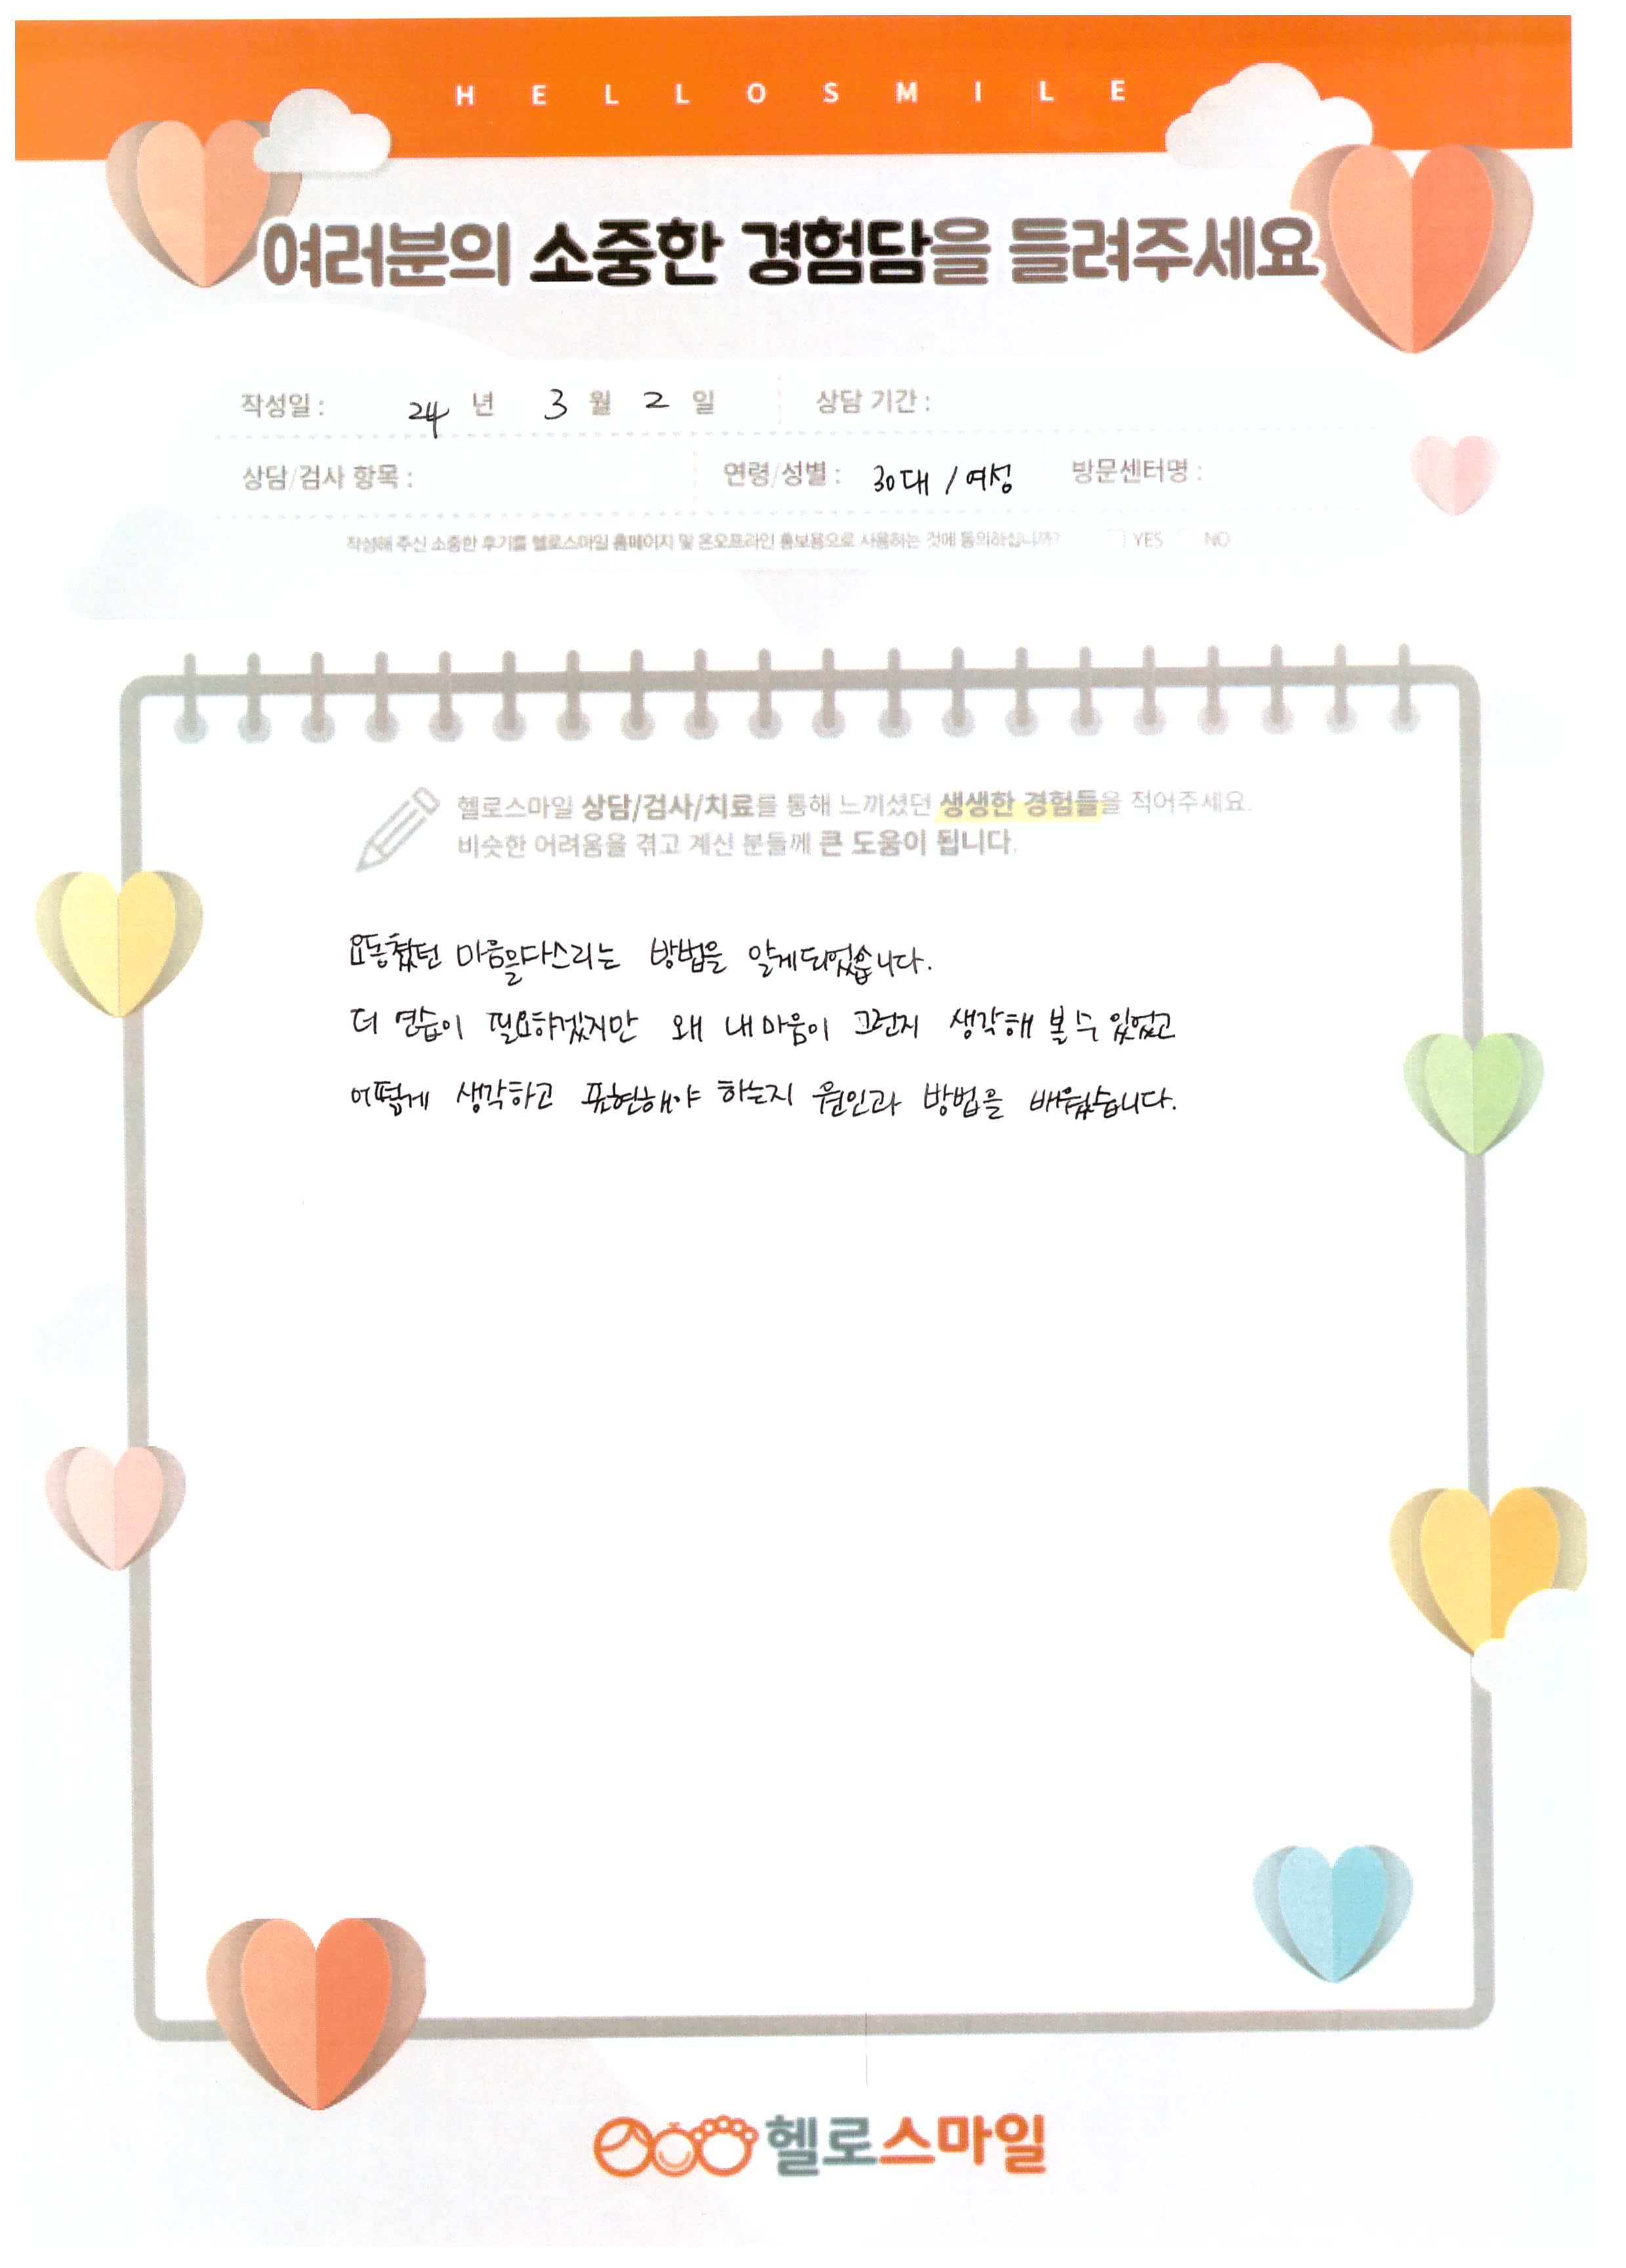 HELLOSMILE
여러분의 소중한 경험담을 들려주세요
작성일 : 24 년 3 월 2 일 상담 기간 :
상담/검사 항목 : 연령/성별 : 30대 / 여성 방문센터명 :
작성해 주신 소중한 후기를 헬로스마일 홈페이지 및 온오프라인 홍보용으로 사용하는 것에 동의하십니까? YES NO
헬로스마일 상담/검사/치료를 통해 느끼셨던 생생한 경험들을 적어주세요.
비슷한 어려움을 겪고 계신 분들께 큰 도움이 됩니다.
요동쳤던 마음을다스리는 방법을 알게되었습니다.
더 연습이 필요하겠지만 왜 내마음이 그런지 생각해 볼 수 있었고
어떻게 생각하고 표현해야 하는지 원인과 방법을 배웠습니다.
헬로스마일